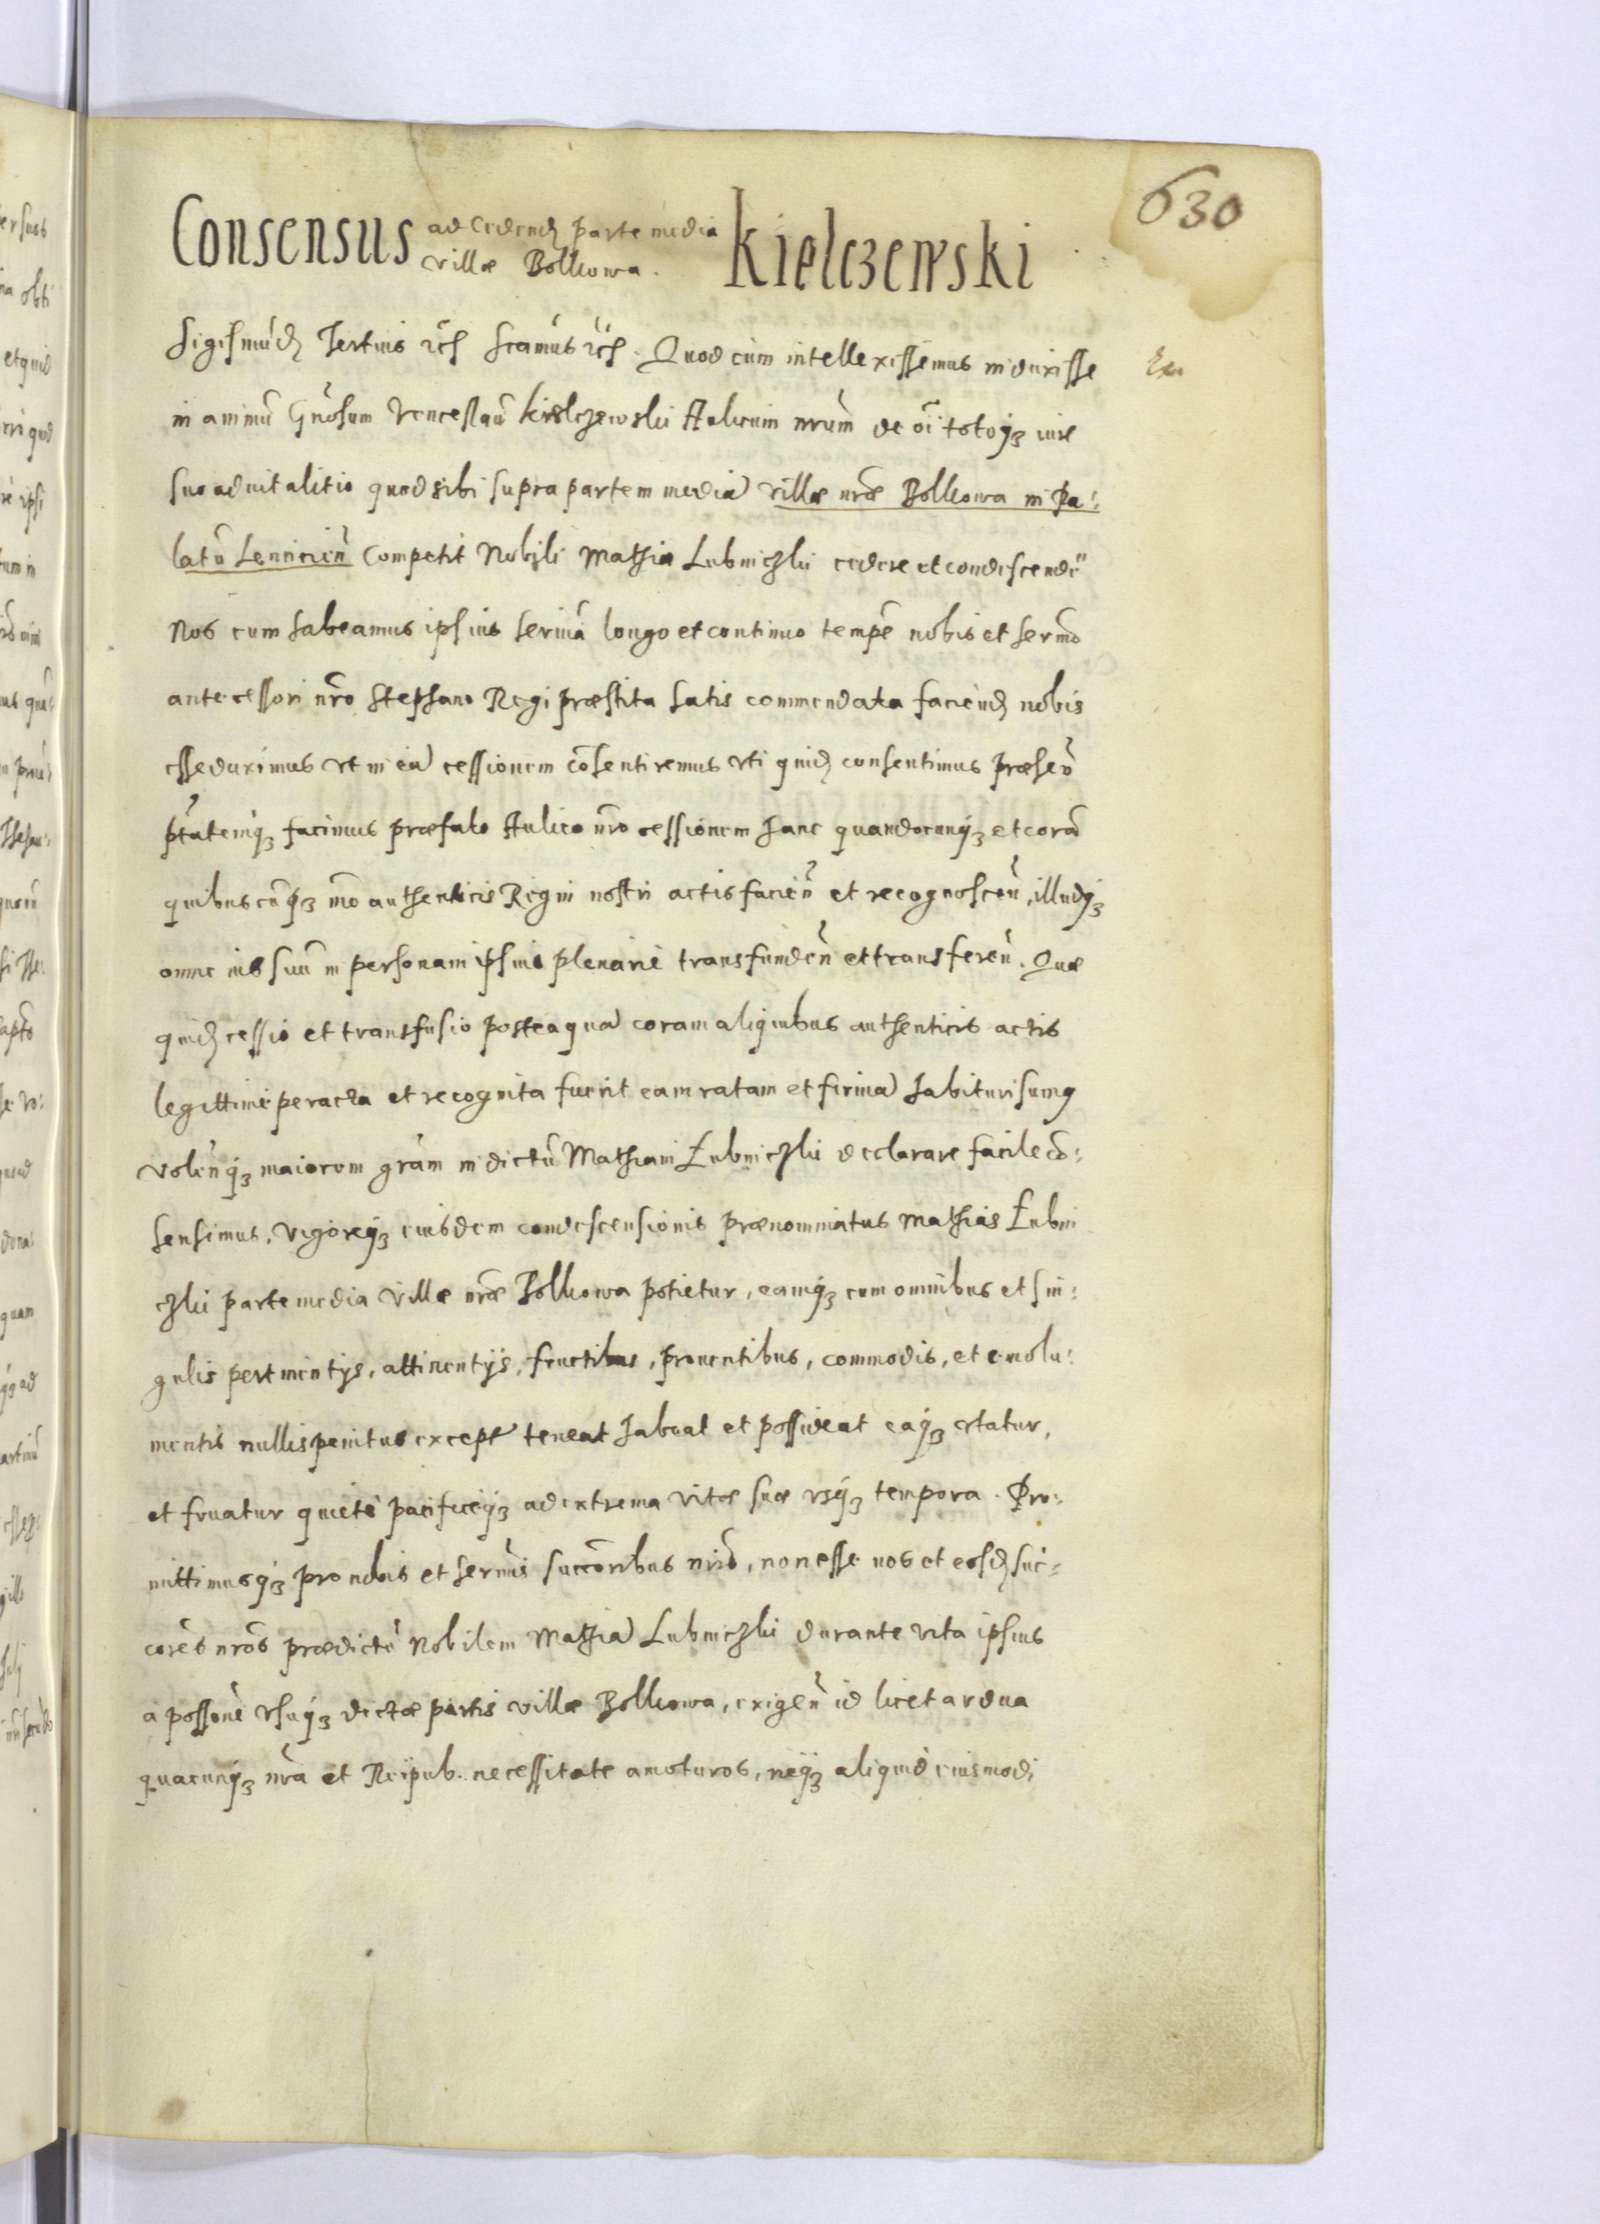 630
Consensus ad cedend parte media Kielczewski
villæ Bolkowa.
Sigismūd Tertius rch Scamus rch. Quod cum intellexissemus induxisse
in animū Gnosum Venceslaū Kielczewski Aulicum nrum de oī totoq3 iure
suo advitalitio quod sibi supra partem mediā villæ nræ Bolkowa in Pa:
latū Lenncien̄ competit Nobili Mathiæ Lubiniczki cedere et condescendē
Nos cum habeamus ipsius servitia longo et continuo tempē nobis et sermo
antecessori nro Stephano Regi præstita satis commendata faciend nobis
esse duximus ut in eā cessionem cōsentiremus uti quid consentimus præsen̄
ptātemq3 facimus præfato Aulico nro cessionem hanc quandocunq3 et corā
quibuscūq3 imo authenticis Regni nostri actis facien̄ et recognoscen̄, illudq3
omne ius suū in personam ipsius plenarie transfunden̄ et transferen̄. Quæ
quid cessio et transfusio posteaquā coram aliquibus authenticis actis
legittime peracta et recognita fuerit eam ratam et firmā habituri sumq
volenq3 maiorem grām in dictū Mathiam Lubiniczki declarare facile cō:
sensimus, vigoreq3 eiusdem condescensionis prænominatus Mathias Lubini
czki parte media villæ nræ Bolkowa potietur, eamq3 cum omnibus et sin:
gulis pertinentijs, attinentijs, fructibus, proventibus, commodis, et emolu:
mentis nullis penitus except teneat habeat et possideat eaq3 utatur,
et fruatur quietè pacificeq3 ad extrema vitæ suæ usq3 tempora. Pro:
mittimusq3 pro nobis et sermis succoribus nris, non esse nos et eosd suc:
cores nros prædictū Nobilem Mathiā Lubiniczki durante vita ipsius
a possone usuq3 dictæ partis villæ Bolkowa, exigen̄ id licet ardua
quacunq3 nra et Reipub. necessitate amoturos, neq3 aliquid eiusmodi